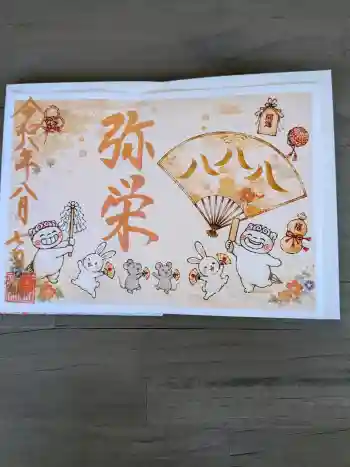 八八八
弥栄
令和八年八月七日